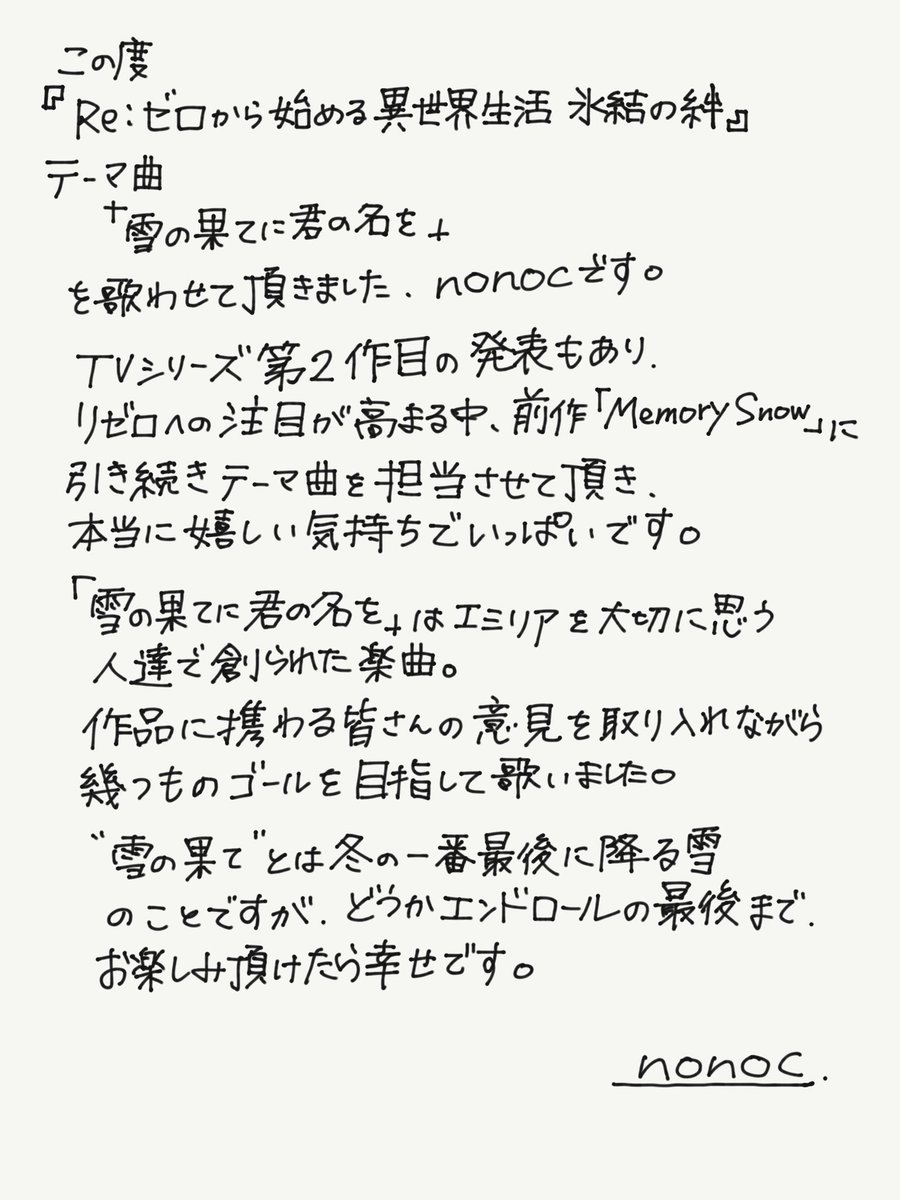 この度
『Re:ゼロから始める異世界生活 氷結の絆』
テーマ曲
「雪の果てに君の名を」
を歌わせて頂きました、nonocです。
TVシリーズ第2作目の発表もあり、
リゼロへの注目が高まる中、前作「Memory Snow」に
引き続きテーマ曲を担当させて頂き、
本当に嬉しい気持ちでいっぱいです。
「雪の果てに君の名を」はエミリアを大切に思う
人達で創られた楽曲。
作品に携わる皆さんの意見を取り入れながら
幾つものゴールを目指して歌いました。
“雪の果て”とは冬の一番最後に降る雪
のことですが、どうかエンドロールの最後まで、
お楽しみ頂けたら幸せです。
nonoc.